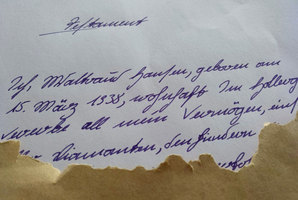 Testament
Ich, Waltraud Hansen, geboren am
15. März 1938, wohnhaft Im
vererbe all mein Vermögen,
Diamanten, den Kindern